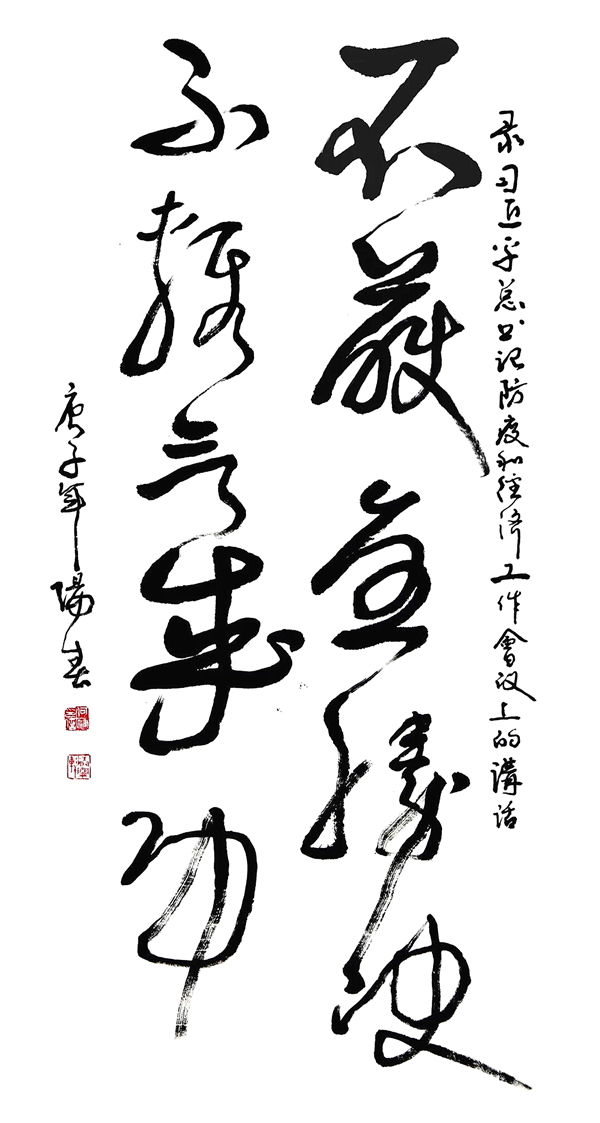 录习近平总书记防疫和经济工作會议上的講话
不获全勝决
不轻言成功
庚子年陽春